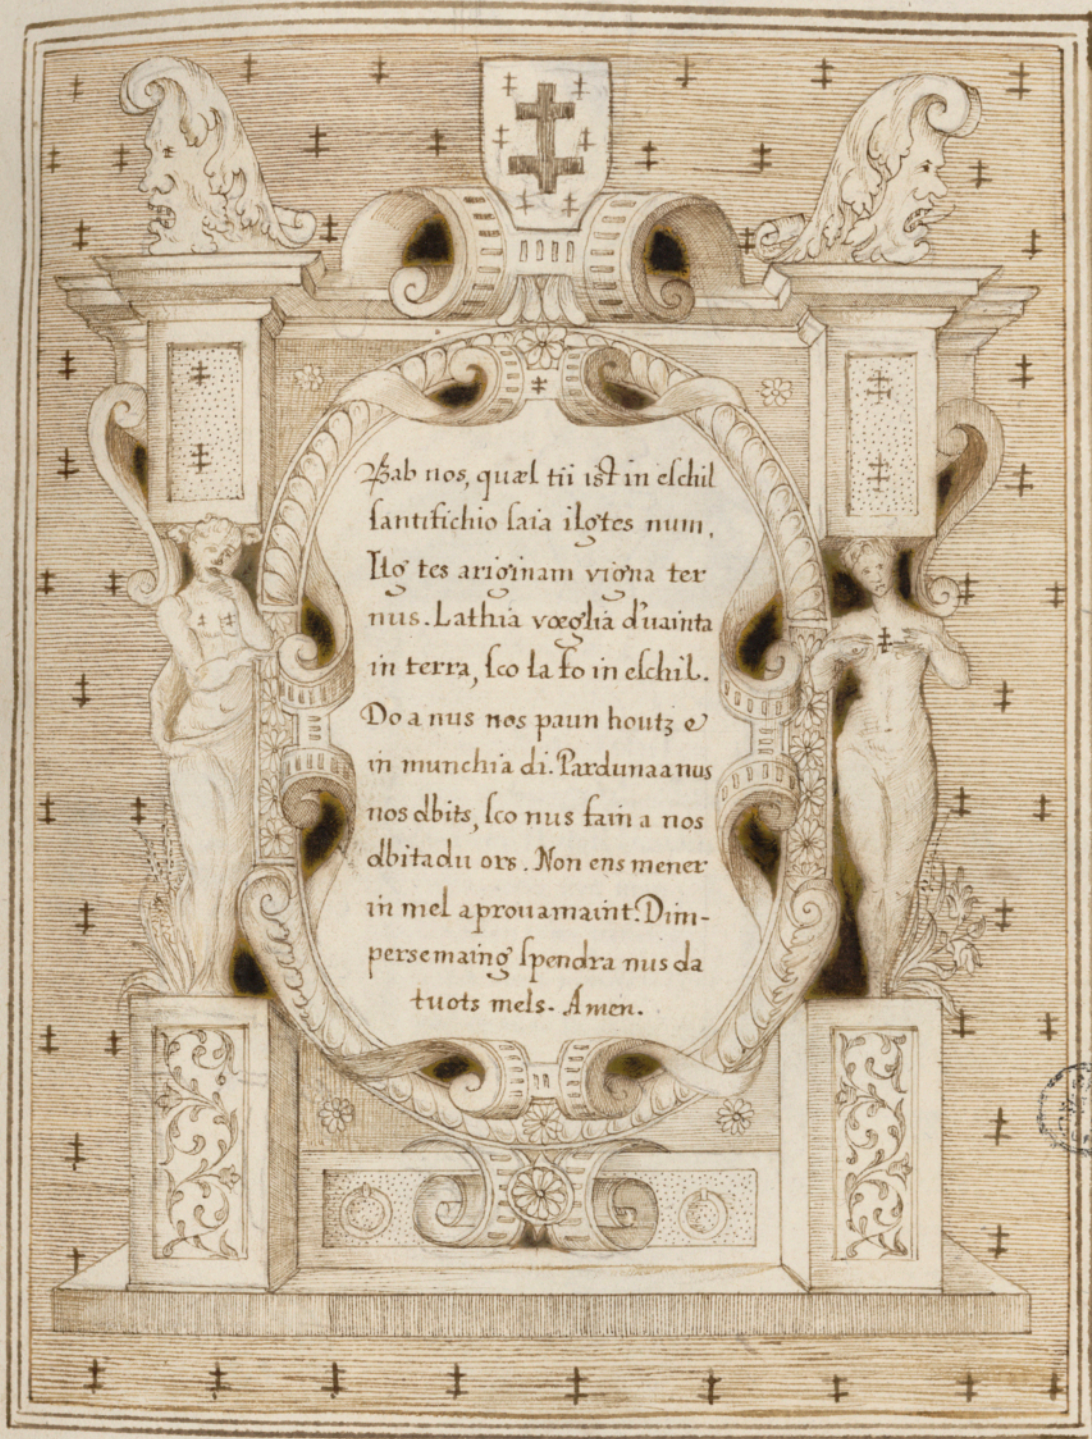 Bab nos, quæl tii ist in eſchil
ſantifichio ſaia ilg tes num.
Ilg tes ariginam vigna ter
nus. Lathia vœglia d'uainta
in terra, ſco la fo in eſchil.
Do a nus nos paun houtz e
in munchia di. Parduna a nus
nos dbits, ſco nus fain a nos
dbitadu ors. Non ens mener
in mel aprouamaint. Dim-
persemaing ſpendra nus da
tuots mels. Amen.